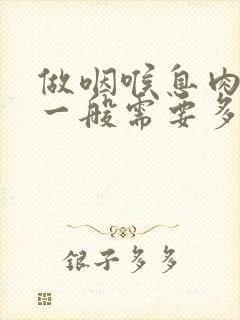 做咽喉息肉
一般需要多
银子多多